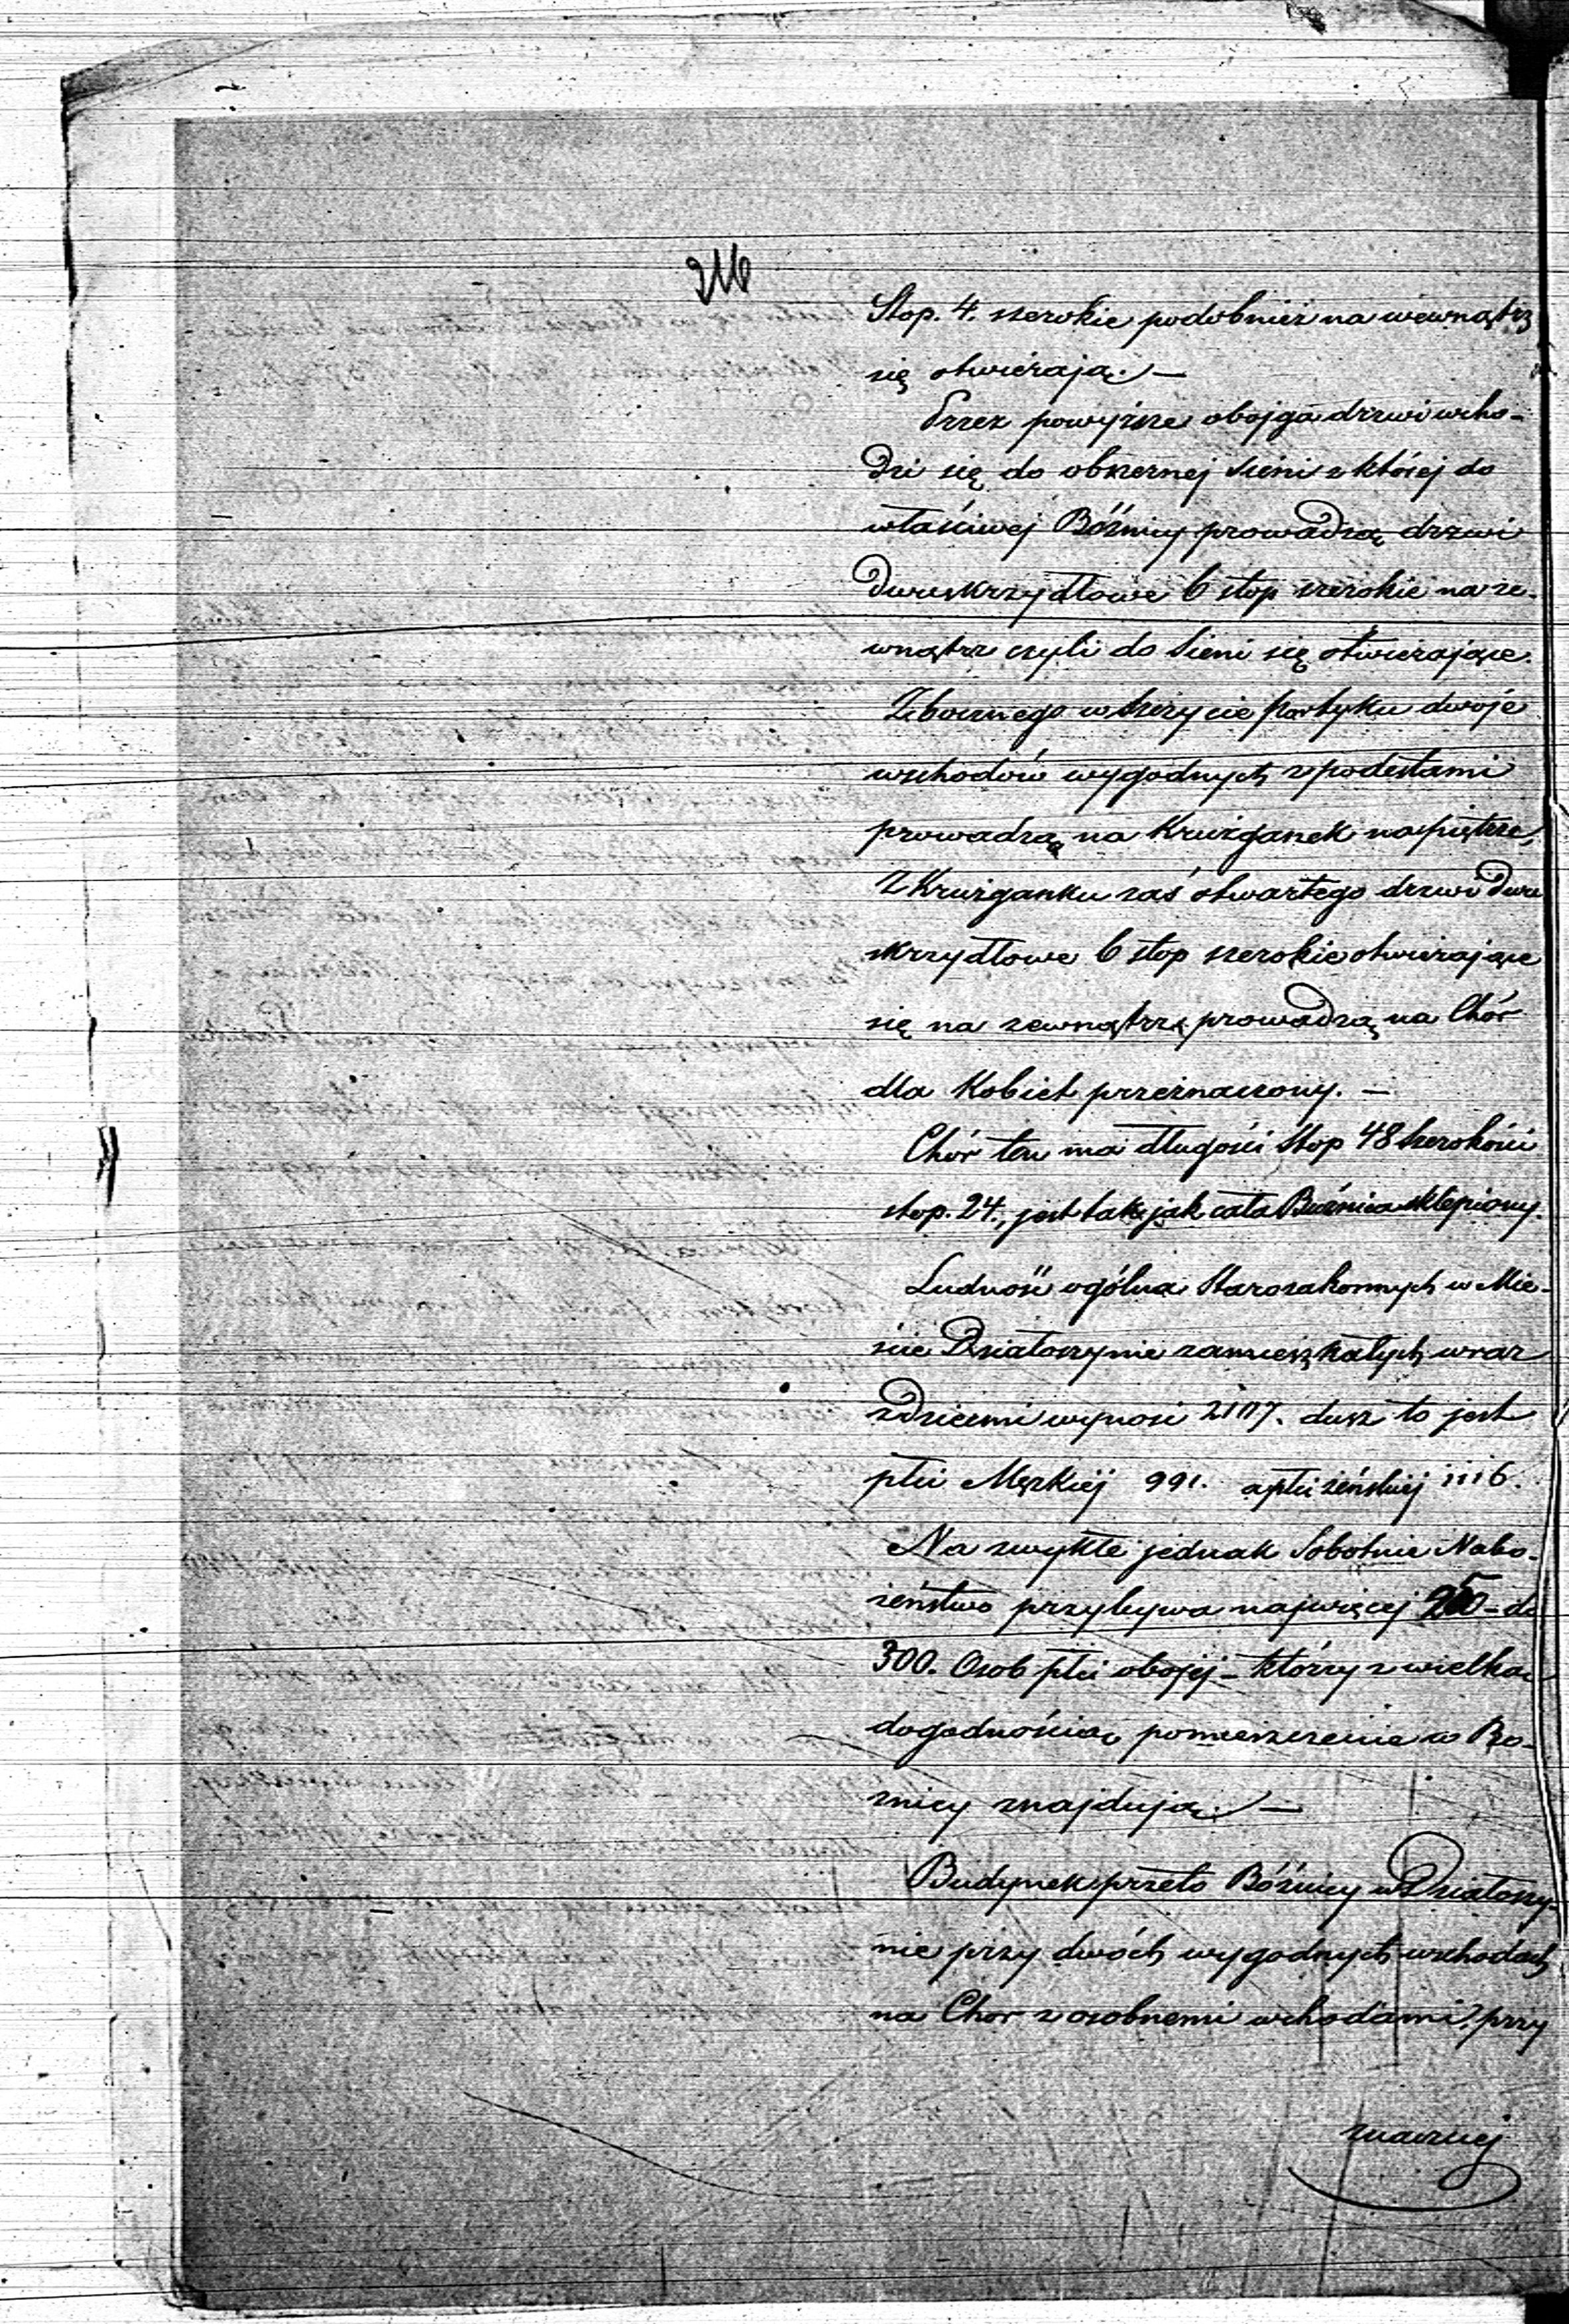 216
Stop. 4. szerokie podobnież na wewnątrz
się otwierają. —
Przez powyższe obojga drzwi wcho-
dzi się do obszernej sieni z której do
właściwej Bóźnicy prowadzą drzwi
dwuskrzydłowe 6 stop szerokie na ze-
wnątrz czyli do Sieni się otwierające.
Z bocznego w szczycie portyku dwoje
wschodów wygodnych z podestami
prowadzą na Krużganek na piętrze,
Z Krużganku zaś otwartego drzwi dwu
skrzydłowe 6 stop szerokie otwierające
się na zewnątrz prowadzą na Chór
dla Kobiet przeznaczony. —
Chór ten ma długości Stop 48 szerokości
stop. 24., jest tak jak cała Bużnica sklepiony.
Ludność ogólna Starozakonnych w Mie-
ście Działoszynie zamieszkałych wraz
z dziećmi wynosi 2107. dusz to jest
płci Męzkiéj 991. a płci żeńskiej 1116.
Na zwykłe jednak Sobotnie Nabo-
żeństwo przybywa najwięcej 250 - do
300. Osob płci obojéj - którzy z wielką
dogodnością pomieszczenie w Bo-
znicy znajdują. —
Budynek przeto Bóźnicy w Działoszy-
nie przy dwóch wygodnych wschodach
na Chor z osobnemi wchodami, przy
znacznej